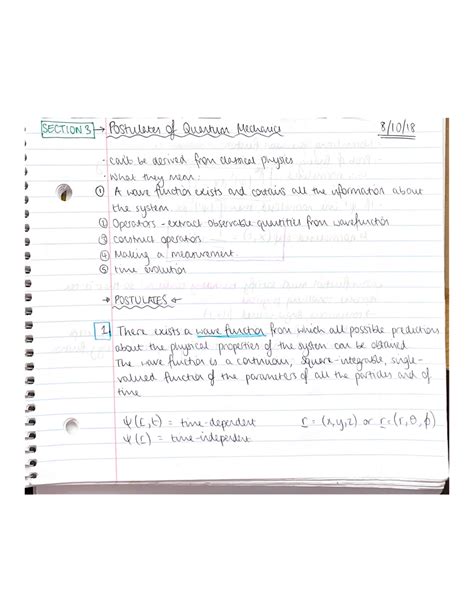 SECTION 3 → Postulates of Quantum Mechanics 8/10/18
· can't be derived from classical physics
· What they mean:
① A wave function exists and contains all the information about
the system
② Operators - extract observable quantities from wavefunction
③ construct operators
④ Making a measurement
⑤ time evolution
→ POSTULATES ←
1 There exists a wave function from which all possible predictions
about the physical properties of the system can be obtained
The wave function is a continuous, square-integrable, single-
valued function of the parameters of all the particles and of
time
Ψ(r,t) = time-dependent r = (x,y,z) or r = (r,θ,ϕ)
Ψ(r) = time-independent